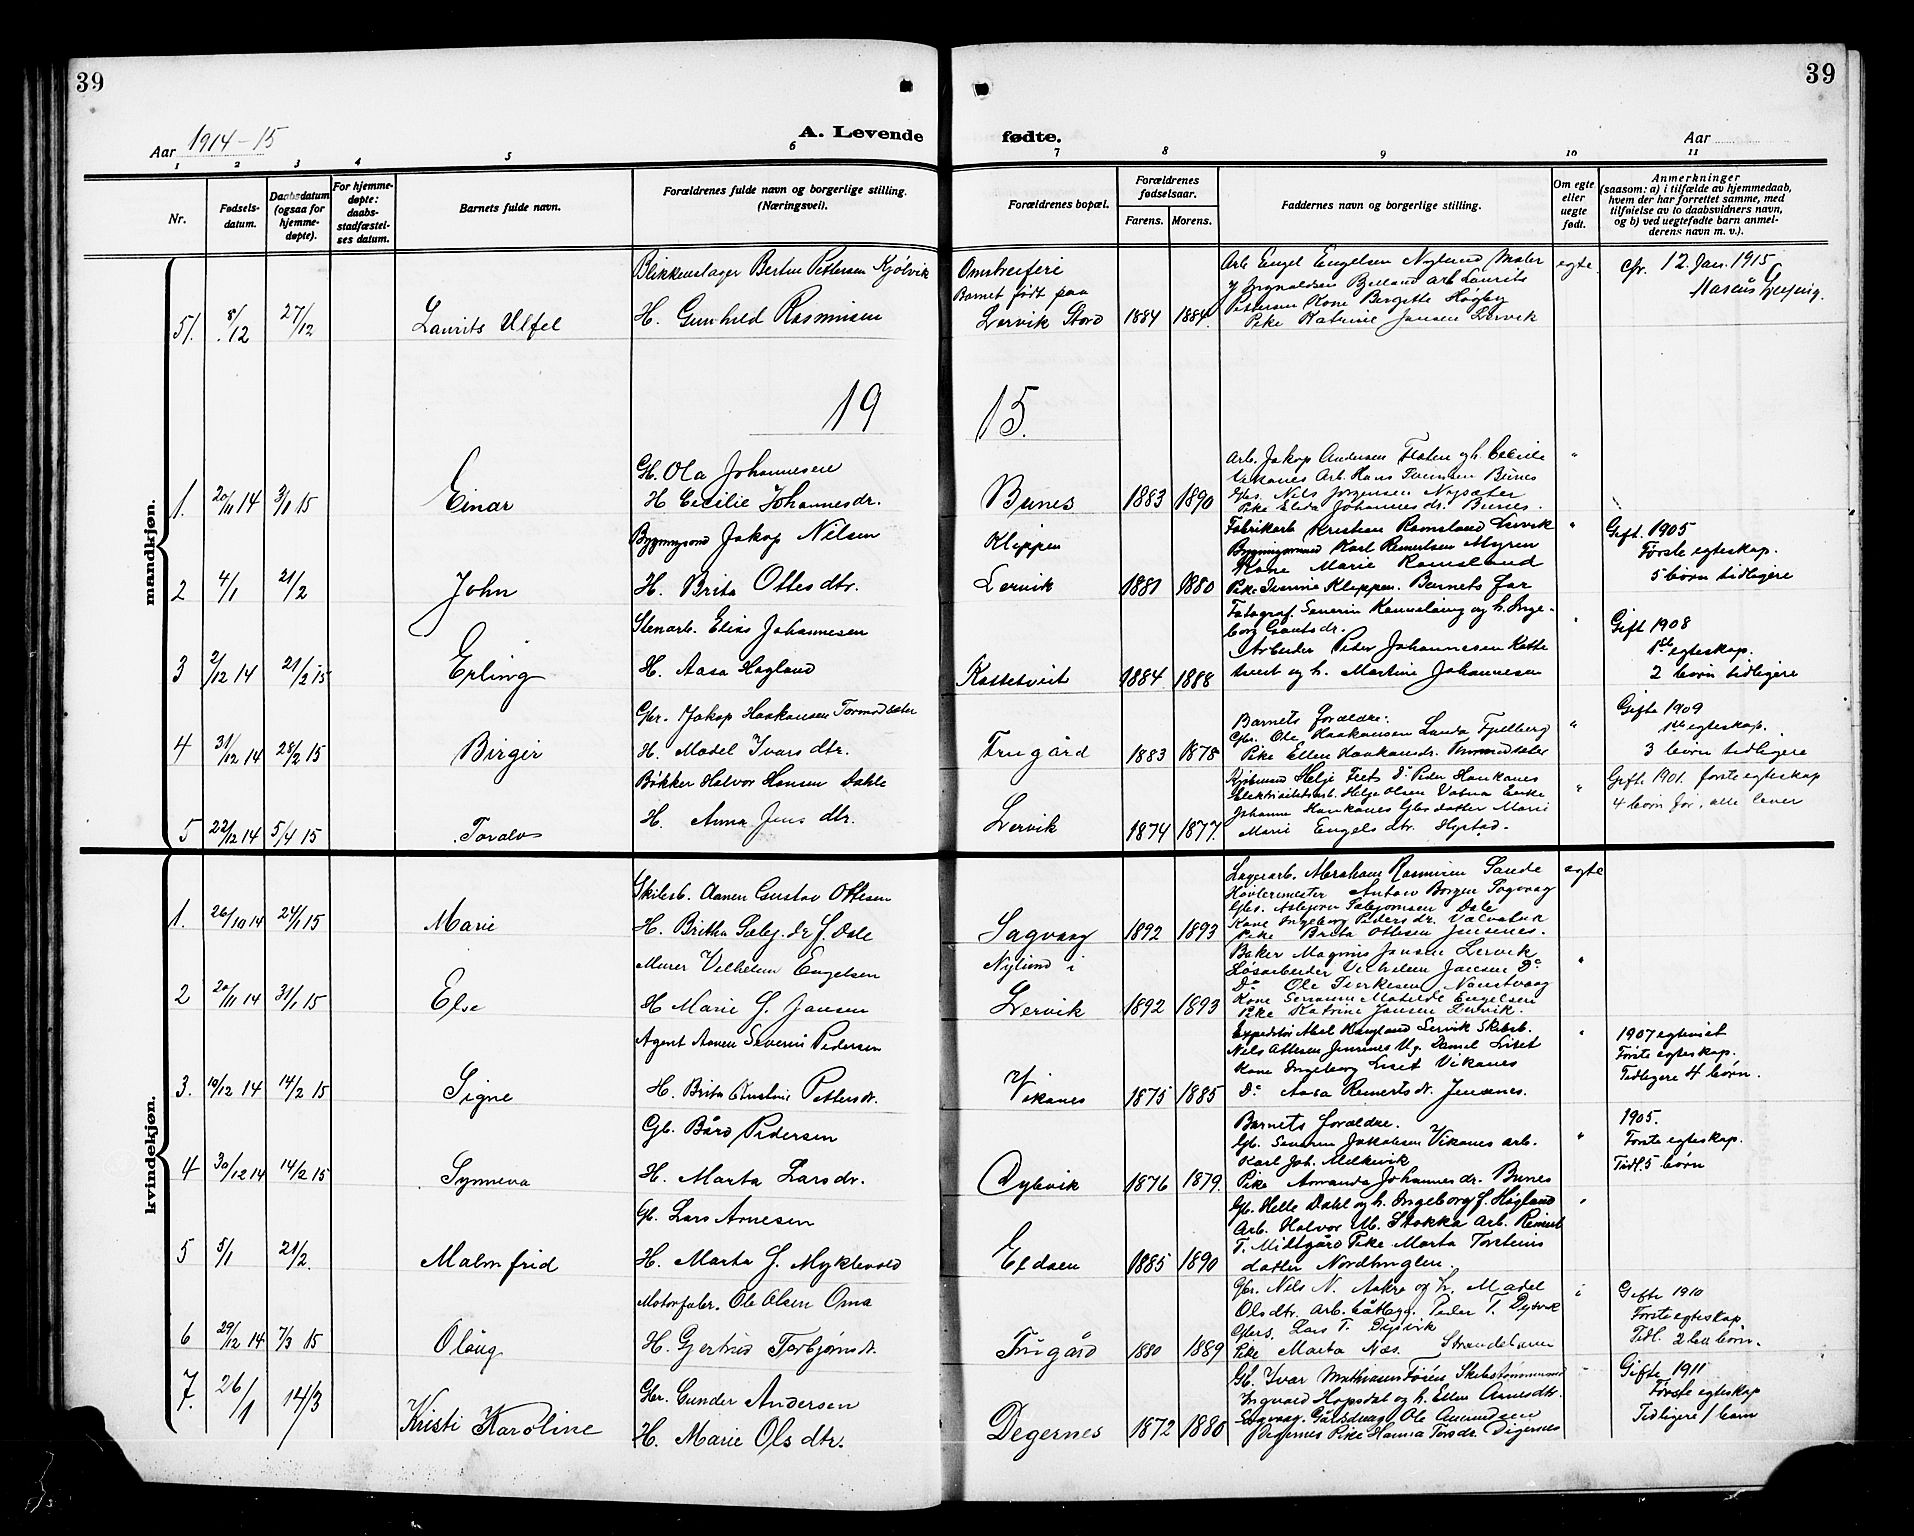 39
39
Aar 1914-15
A. Levende fødte.
Aar
1 2 3 4 5 6 7 8 9 10 11
Nr.
Fødsels-
datum.
Daabsdatum
(ogsaa for
hjemme-
døpte).
For hjemme-
døpte:
daabs-
stadfæstel-
ses datum.
Barnets fulde navn.
Forældrenes fulde navn og borgerlige stilling.
(Næringsvei).
Forældrenes bopæl.
Forældrenes
fødselsaar.
Farens. Morens.
Faddernes navn og borgerlige stilling.
Om egte
eller
uegte
født.
Anmerkninger
(saasom: a) i tilfælde av hjemmedaab,
hvem der har forrettet samme, med
tilføielse av to daabsvidners navn,
og b) ved uegtefødte barn anmel-
derens navn m. v.).
mandkjøn.
51. 8/12 27/12 Laurits Ulfel
Blikkenslager Bertin Pettersen Kjølvik
H. Gunhild Rasmusen
Omstreifere
Barnet født paa
Lervik Stord 1884 1884
Arb. Engel Engelsen Nylund Maler
Arb Laurits
Pettersen Kone Bergitte Høgby
Pike Katrine Jansen Lervik
egte
12. Jan. 1915
19 15.
1. 20/11 14 3/1 15 Einar
Gb. Ola Johannesen
H Cecilie Johannesdr.
Bunes 1883 1890
Arb. Jakop Andersen Flaten og h. Cecilie
Vikanes Arb. Hans Bunes
Gbs. Nils Jørgensen Nysæter
Pike Elida Johannesdr. Bunes.
"
2 4/1 21/2 John
Bygningsmd Jakop Nilsen
H. Brita Ottesdtr.
Klippen
Lervik 1881 1880
Fabrikarb Kristian Ramsland Lervik
Bygningsmand Karl Remertsen Myren
Kone Marie Ramsland
Pike Klippen. Barnets far
"
Gift. 1905
Første egteskap.
5 børn tidligere
3 2/12 14 21/2 15 Erling
Stenarb. Elias Johannesen
H. Aasa Hagland
Kattetveit 1884 1888
Fotograf. Severin og h. Inge-
borg
Arbeider Peder Johannesen Katte
tveit og h. Martine Johannesen
Gift 1908
1ste egteskap.
2 børn tidligere
4 31/12 14 28/2 15 Birger
Gbr. Jakop Haakonsen Tormodsæter
H. Madel Ivarsdtr.
Frugård 1883 1878
Barnets forældre.
Gbr. Ole Haakonsen Landa Fjelberg
Pike Ellen Haakonsdr. Tormodsæter
"
Gifte 1909
1ste egteskap.
3 børn tidligere
5 22/12 14 5/4 15 Toralv
Bøkker Halvor Hansen Dahle
H. Anna Jensdtr.
Lervik 1874 1877.
Kjøbmand Helje Do Peder Haukanes
Elektricitetsarb. Helge Olsen Vatna Enke
Johanne Haukanes Gbs datter Marie
Marie Engelsdtr. Hystad.
"
Gifte 1901. første egteskap
4 børn før, alle lever
kvindekjøn.
1. 26/10 14 24/1 15 Marie
Skibsb. Aanen Gustav Ottesen
H. Britha dr f. Dale
Sagvaag 1892 1893
Lagerarb. Abraham Rasmusen Sande
Høvlermester Anton Borgen Sagvaag
Gbs. Asbjørn Dale
Kone Ingeborg Pedersdr. Valvatna
Pike Brita Ottesen Jensenes.
egte
2 20/11 14 31/1 15 Else
Murer Vilhelm Engelsen
H Marie G. Jansen
Nylund i
Lervik 1892 1893
Baker Magnus Jansen Lervik
Løsarbeider Vilhelm Jansen Do
Do Ole Terkesen Naustvaag
Kone Serianna Matilde Engelsen
Pike Katrine Jansen Lervik.
"
3. 10/12 14 14/2 15 Signe
Agent Aanen Severin Pedersen
H. Brita Kristine Pettersdr.
Vikanes 1875 1885
Expeditør Abel Lervik Skibsb.
Nils Ottesen Jensenes Ug. Daniel Liset
Kone Ingeborg Liset Vikanes
Do Aasa Remertsdr. Jensenes.
"
1907 egteviet
Første egteskap.
Tidligere 4 børn.
4 30/12 14 14/2 15 Synneva
Gb. Bård Pedersen
H. Marta Larsdr.
Dybvik 1876 1879
Barnets forældre.
Gb. Severin Jakobsen Vikanes arb.
Karl Joh. Melkevik
Pike Amanda Johannesdr. Bunes
"
1905.
Første egteskap.
Tidl. 5 børn
5 5/1 21/2. Malmfrid
Gb. Lars Arnesen
H. Marta G. Myklevold
Eldøen 1885 1890
Gb. Helle Dahl og h. Ingeborg f. Høgland
Arb. Halvor M. Stokka Arb. Reinert
T. Midtgård Pike Marta Torsteins
datter Nordhuglen.
6 29/12 14 7/3 15 Olaug
Motorfabr. Ole Olsen Oma
H. Gjertrud Torbjørnsdr.
Frugård 1880 1889
Gbr. Nils N. Aakre og h. Madel
Olsdtr. Arb. Peder T. Dybvik
Gbrs. Lars T. Dybvik
Pike Marta Næs.
Gifte 1910
Første egteskap.
Tidl. 2 børn.
7. 26/1 14/3 Kristi Karoline
Gbr. Gunder Andersen
H. Marie Olsdtr.
Degernes 1872 1880
Gb. Ivar Mathiasen Tøien Skibstømmermand
Ingvard Hopsdal og h. Ellen Arnesdtr.
Sagvag. Ole Amundsen
Degernes Pike Hanna Torsdr. Digernes
Gifte 1911
Første egteskap
Tidligere 1 barn